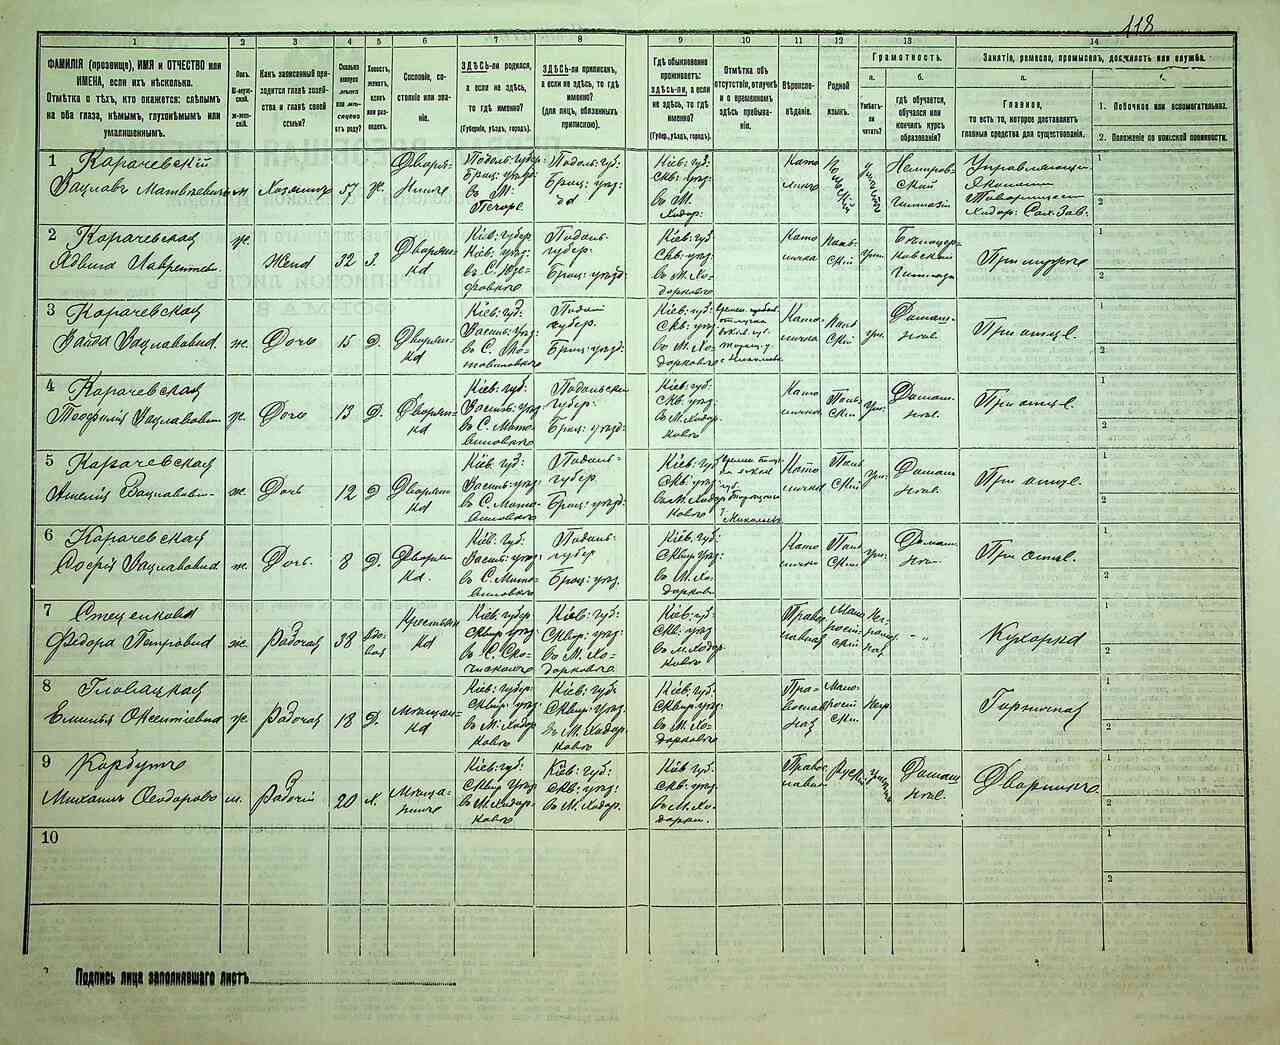 118
1
2
3
4
5
6
7
8
9
10
11
12
13
14
ФАМИЛІЯ (прозвище), ИМЯ и ОТЧЕСТВО или
ИМЕНА, если ихъ нѣсколько.
Отмѣтка о тѣхъ, кто окажется: слѣпымъ
на оба глаза, нѣмымъ, глухонѣмымъ или
умалишеннымъ.
Полъ.
М-муж-
ской.
ж-жен-
скій.
Какъ записанный при-
ходится главѣ хозяй-
ства и главѣ своей
семьи?
Сколько
минуло
лѣтъ
или мѣ-
сяцевъ
отъ роду?
Холостъ,
женатъ,
вдовъ
или раз-
веденъ.
Сословіе, со-
стояніе или зва-
ніе.
ЗДѢСЬ-ли родился,
а если не здѣсь,
то гдѣ именно?
(Губернія, уѣздъ, городъ).
ЗДѢСЬ-ли приписанъ,
а если не здѣсь, то гдѣ
именно?
(для лицъ, обязанныхъ
припискою).
Гдѣ обыкновенно
проживаетъ:
ЗДѢСЬ-ли, а если
не здѣсь, то гдѣ
именно?
(Губер., уѣздъ, городъ).
Отмѣтка объ
отсутствіи, отлучкѣ
и о временномъ
здѣсь пребыва-
ніи.
Вѣроиспо-
вѣданіе.
Родной
языкъ.
Грамотность.
а.
б.
Умѣетъ-
ли
читать?
гдѣ обучается,
обучался или
кончилъ курсъ
образованія?
Занятіе, ремесло, промыселъ, должность или служба.
а.
б.
Главное,
то есть то, которое доставляетъ
главныя средства для существованія.
1. Побочное или вспомогательное.
2. Положеніе по воинской повинности.
1
Карачевскій
Вацлавъ Матвѣевичъ
м
Хозяинъ
57
Ж.
Дворя-
нинъ
Подоль: губер:
Брац: уѣзд:
въ М:
Печоре
Подоль: губ:
Брац: уѣзд:
Кіев: губ:
Скв: уѣзд:
въ М.
Ходор:
Като
ликъ
Немиров-
ский
гимназіи
Управляющи
Экономии
Товарищест
Ходор: Сах: Зав:
1
2
2
Карачевская
Ядвига Лаврентев.
ж.
Жена
32
З.
Дворян-
ка
Кіев: губер
Кіев: уѣзд:
Подоль:
губер:
Брац: уѣзд:
Кіев: губ
Скв: уѣзд:
въ М. Хо-
дорково
Като
личка
Поль-
ский
Бѣлоцер-
ковской
При мужѣ
1
2
3
Карачевская
Ванда Вацлавовна
ж.
Дочь
15
Д.
Дворян-
ка
Кіев: губ:
Васил: уѣзд:
въ С. Мо-
товиловкѣ
Подол
губер.
Брац: уѣзд:
Кіев: губ:
Скв: уѣзд:
въ М. Хо-
дорково
Като-
личка
Поль
ский
ум.
Домаш-
нее.
При отце.
1
2
4
Карачевская
Теофилія Вацлавовн
ж.
Дочь
13
Д.
Дворян-
ка
Кіев: губ:
Васил: уѣзд:
въ С. Мото-
виловкѣ
Подольски
губер:
Брац: уѣзд:
Кіев: губ:
Скв: уѣзд
въ М. Ходор-
ково
Като
личка
Поль-
ский
Ум:
Домаш-
нее.
При отце.
1
2
5
Карачевская
Амелія Вацлавовн-
ж.
Дочь
12
Д.
Дворян-
ка
Кіев: губ:
Васил: уѣзд:
въ С. Мото-
виловкѣ
Подоль-
губер
Брац: уѣзд:
Кіев: губ
Скв: уѣзд:
въ М. Ходор
ково
Като
личка
Поль
ский
ум:
Домаш
нее.
При отце.
1
2
6
Карачевская
Софія Вацлавовна
ж.
Дочь.
8
Д.
Дворян
ка.
Кіев: губ:
Васил: уѣзд:
въ С. Мото-
виловкѣ
Подоль-
губер
Брац: уѣзд.
Кіев: губ:
Сквир уѣзд.
въ М. Хо-
дорково
Като
личка
Поль
ский
ум:
Домаш
нее.
При отце.
1
2
7
Стеценкова
Федора Петровна
ж.
Рабочая
38
вдо-
вая
Крестьян
ка
Кіев: губер:
Сквир уѣзд
Кіев: губ:
Сквир: уѣзд.
въ М. Хо-
дорково
Кіев: губ:
Скв: уѣзд
въ М. Ходор-
ково
Право
славная
Мало
росс
ский
Не-
грамот
ная
- "
Кухарка
1
2
8
Гловацкая
Емилія Оксентіевна
ж.
Рабочая
18
Д.
Мѣщан-
ка
Кіев: губер:
Сквир: уѣзд
въ М. Ходор
ково
Кіев: губ:
Сквир: уѣзд.
въ М. Ходор-
ково
Кіев: губ:
Сквир: уѣзд
въ М. Хо-
дорково
Пра-
вослав
ная
Мало-
росс
ский
Нер
Горничная
1
2
9
Корбутъ
Михаилъ Феодорово
м.
Рабочій
20
х.
Мѣща-
нинъ
Кіев: губ:
Сквир уѣзд
въ М. Ходор-
ково
Кіев: губ:
Скв: уѣзд:
въ М. Ходор.
Кіев губ:
Скв: уѣзд:
въ М. Хо-
дорки.
Право
славный
Руск
Домаш
нее.
Дворникъ
1
2
10
1
2
Подпись лица заполнявшаго листъ